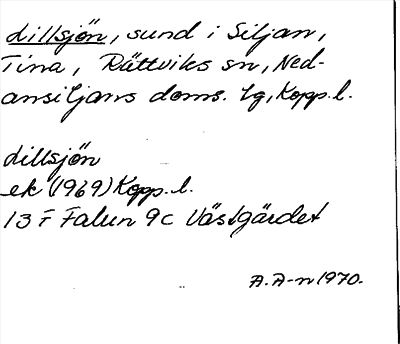 Lillsjön, sund i Siljan,
Tina, Rättviks sn, Ned-
ansiljans doms. lg, Kopp. l.
Lillsjön
ek (1969) Kopp. l.
13 F Falun 9c Västgärdet
A. A-n 1970.